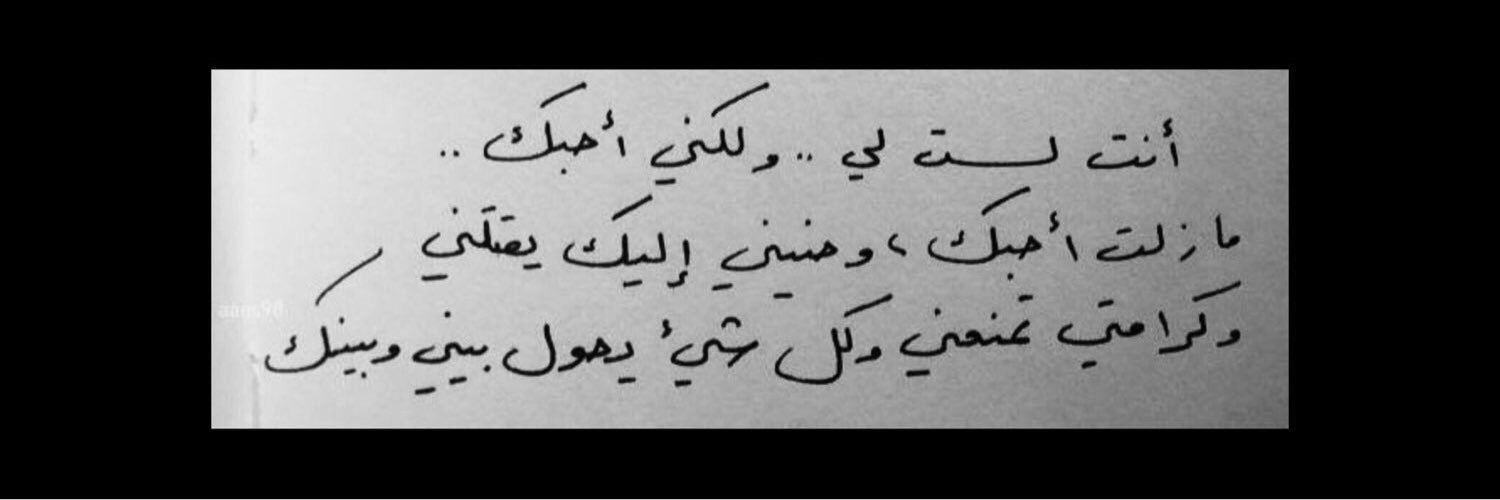 أنت لست لي .. ولكني أحبك ..
مازلت أحبك ، وحنيني إليك يقتلني
وكرامتي تمنعني وكل شيئ يحول بيني وبينك